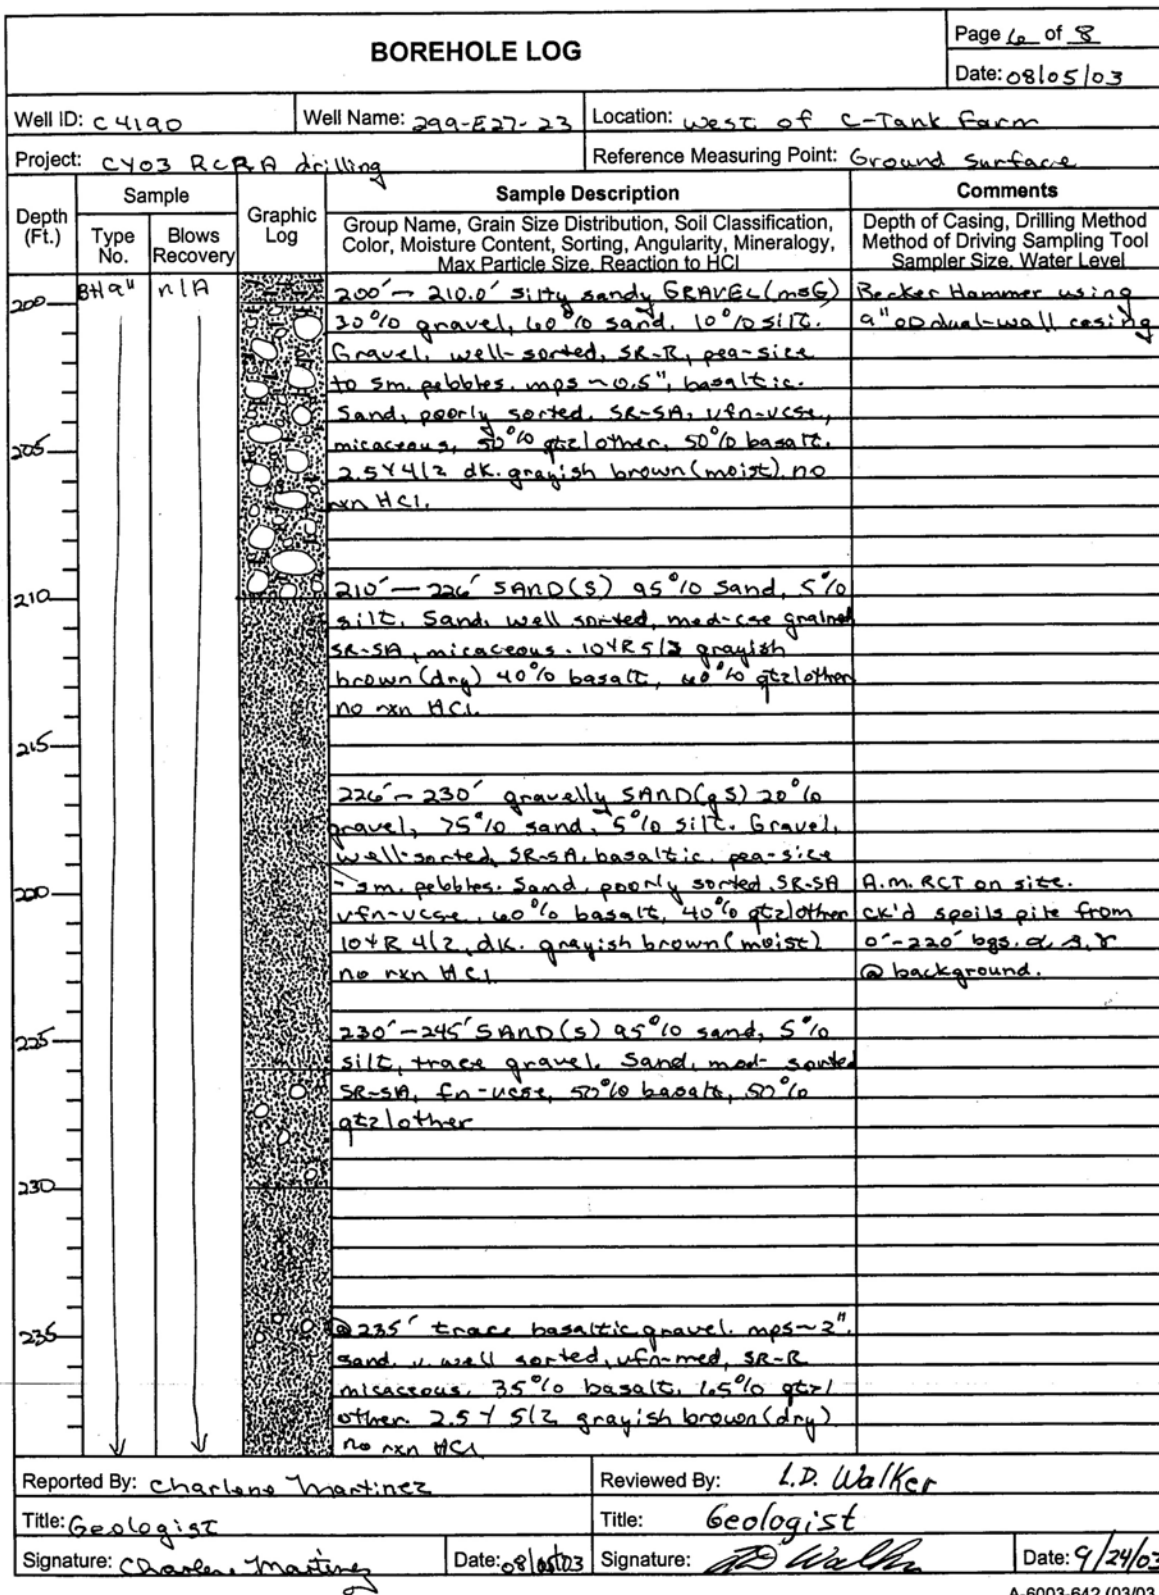 BOREHOLE LOG
Page 6 of 8
Date: 08/05/03
Well ID: C4190
Well Name: 299-E27-23
Location: West of C-Tank Farm
Project: CY03 RCRA drilling
Reference Measuring Point: Ground Surface
Depth (Ft.)
Sample
Type No.
Blows Recovery
Graphic Log
Sample Description
Group Name, Grain Size Distribution, Soil Classification,
Color, Moisture Content, Sorting, Angularity, Mineralogy,
Max Particle Size, Reaction to HCl
Comments
Depth of Casing, Drilling Method
Method of Driving Sampling Tool
Sampler Size, Water Level
200 BH 9" n/A 200'- 210.0' silty sandy GRAVEL (msG) Becker Hammer using
30% gravel, 60% sand, 10% silt. 9" OD dual-wall casing
Gravel, well-sorted, SR-R, pea-size
to sm. pebbles. mps ~0.5", basaltic.
Sand, poorly sorted, SR-SA, vfn-vcse,
205 micaceous, 50% qtz/other, 50% basalt.
2.5Y4/2 dk. grayish brown (moist) no
rxn HCl.
210 210'— 226' SAND (S) 95% Sand, 5%
silt. Sand, well sorted, med-cse grained
SR-SA, micaceous. 10YR5/2 grayish
brown (dry) 40% basalt, 60% qtz/other
no rxn HCl.
215
226'- 230' gravelly SAND (gS) 20%
gravel, 75% sand, 5% silt. Gravel,
well-sorted, SR-SA, basaltic, pea-size
200 - sm. pebbles. Sand, poorly sorted, SR-SA A.m. RCT on site.
vfn-vcse, 60% basalt, 40% qtz/other ck'd spoils pile from
10YR 4/2, dk. grayish brown (moist) 0'-220' bgs. α, β, γ
no rxn HCl @ background.
225 230'-245' SAND (S) 95% sand, 5%
silt, trace gravel. Sand, mod- sorted
SR-SA, fn-vcse, 50% basalt, 50%
qtz/other
230
235 @235' trace basaltic gravel. mps~2".
sand, v. well sorted, vfn-med, SR-R
micaceous, 35% basalt, 65% qtz/
other. 2.5Y 5/2 grayish brown (dry)
no rxn HCl
Reported By: Charlene Martinez
Reviewed By: L.D. Walker
Title: Geologist
Title: Geologist
Signature: Charlene Martinez
Date: 08/05/03
Signature: LD Walker
Date: 9/24/03
A-6003-642 (03/03